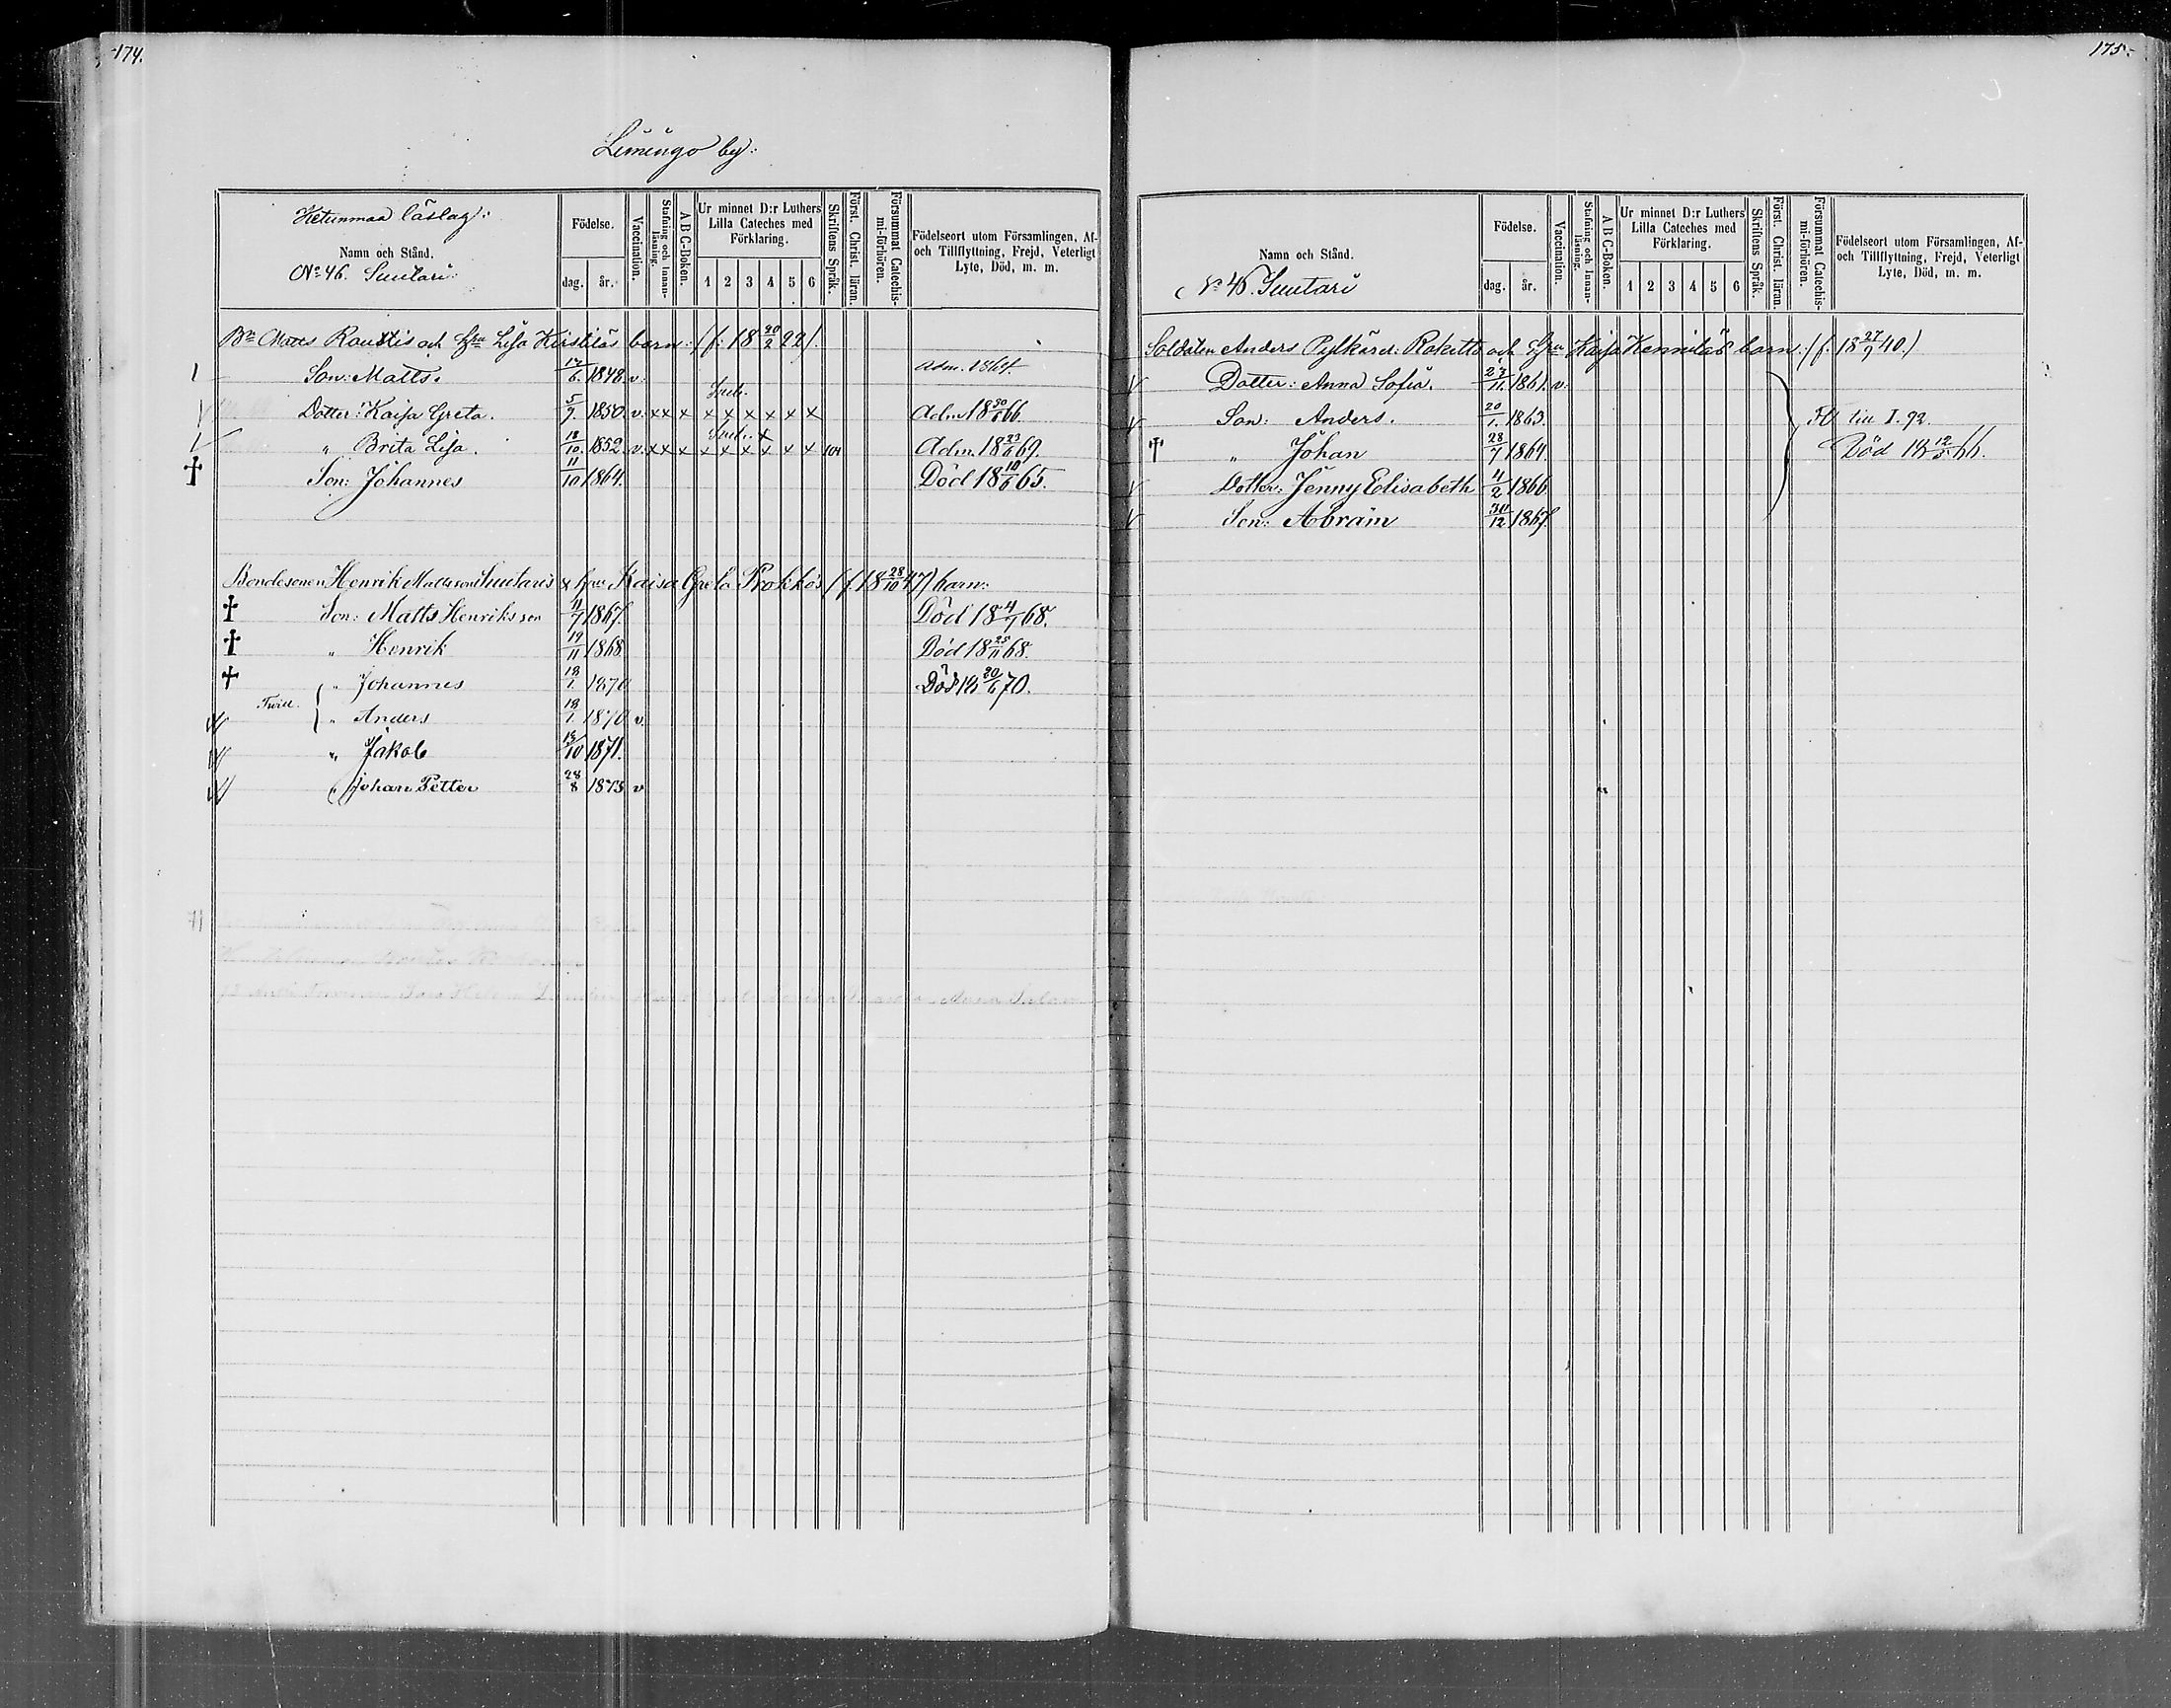 174.
Limingo by:
Ketunmaa läslag:
Namn och Stånd.
No 46. Suutari:
Födelse.
dag. år.
Vaccination.
Stafning och Innan-läsning.
A B C-Boken.
Ur minnet D:r Luthers Lilla Cateches med Förklaring.
1 2 3 4 5 6
Skriftens Språk.
Först. Christ. läran.
Försummat Catechis-mi-förhören.
Födelseort utom Församlingen, Af- och Tillflyttning, Frejd, Veterligt Lyte, Död, m. m.
Bn Matts Rautis och Hu Lisa Kirstiläs barn: (f: 18 20/2 22).
Son: Matts. 17/6. 1848. v. Adm. 1864.
Dotter: Kaisa Greta. 5/9. 1850. v. x x x x x x x x x Adm. 18 30/6 66.
" Brita Lisa. 18/10. 1852. v. x x x x x x x x x 104 Adm. 18 23/6 69.
† Son: Johannes 11/10 1864. Död 18 10/6 65.
Bondesonen Henrik Mattsson Suutaris & hu Kaisa Greta Prokkos (f. 18 28/10 47) barn:
† Son: Matts Henriksson 11/7 1867. Död 18 4/7 68.
† " Henrik 19/11 1868. Död 18 25/11 68.
† " Johannes 18/1. 1870 Död 18 20/6 70.
Twill. " Anders 18/1. 1870 v.
" Jakob 13/10 1871.
" Johan Petter 28/8 1873 v
175.
Namn och Stånd.
No 46. Suutari
Födelse.
dag. år.
Vaccination.
Stafning och Innan-läsning.
A B C-Boken.
Ur minnet D:r Luthers Lilla Cateches med Förklaring.
1 2 3 4 5 6
Skriftens Språk.
Först. Christ. läran.
Försummat Catechis-mi-förhören.
Födelseort utom Församlingen, Af- och Tillflyttning, Frejd, Veterligt Lyte, Död, m. m.
Soldaten Anders Pylkärd: Rakitto och Hu Kaisa Kenniläs barn: (f. 18 27/7 40.)
Dotter: Anna Sofia. 27/11. 1861. v.
Son: Anders. 20/1. 1863. Fl. till I. 92.
† " Johan 28/7 1864. Död 18 12/5 66.
Dotter: Jenny Elisabeth 4/2 1866.
Son: Abram 30/12 1867.